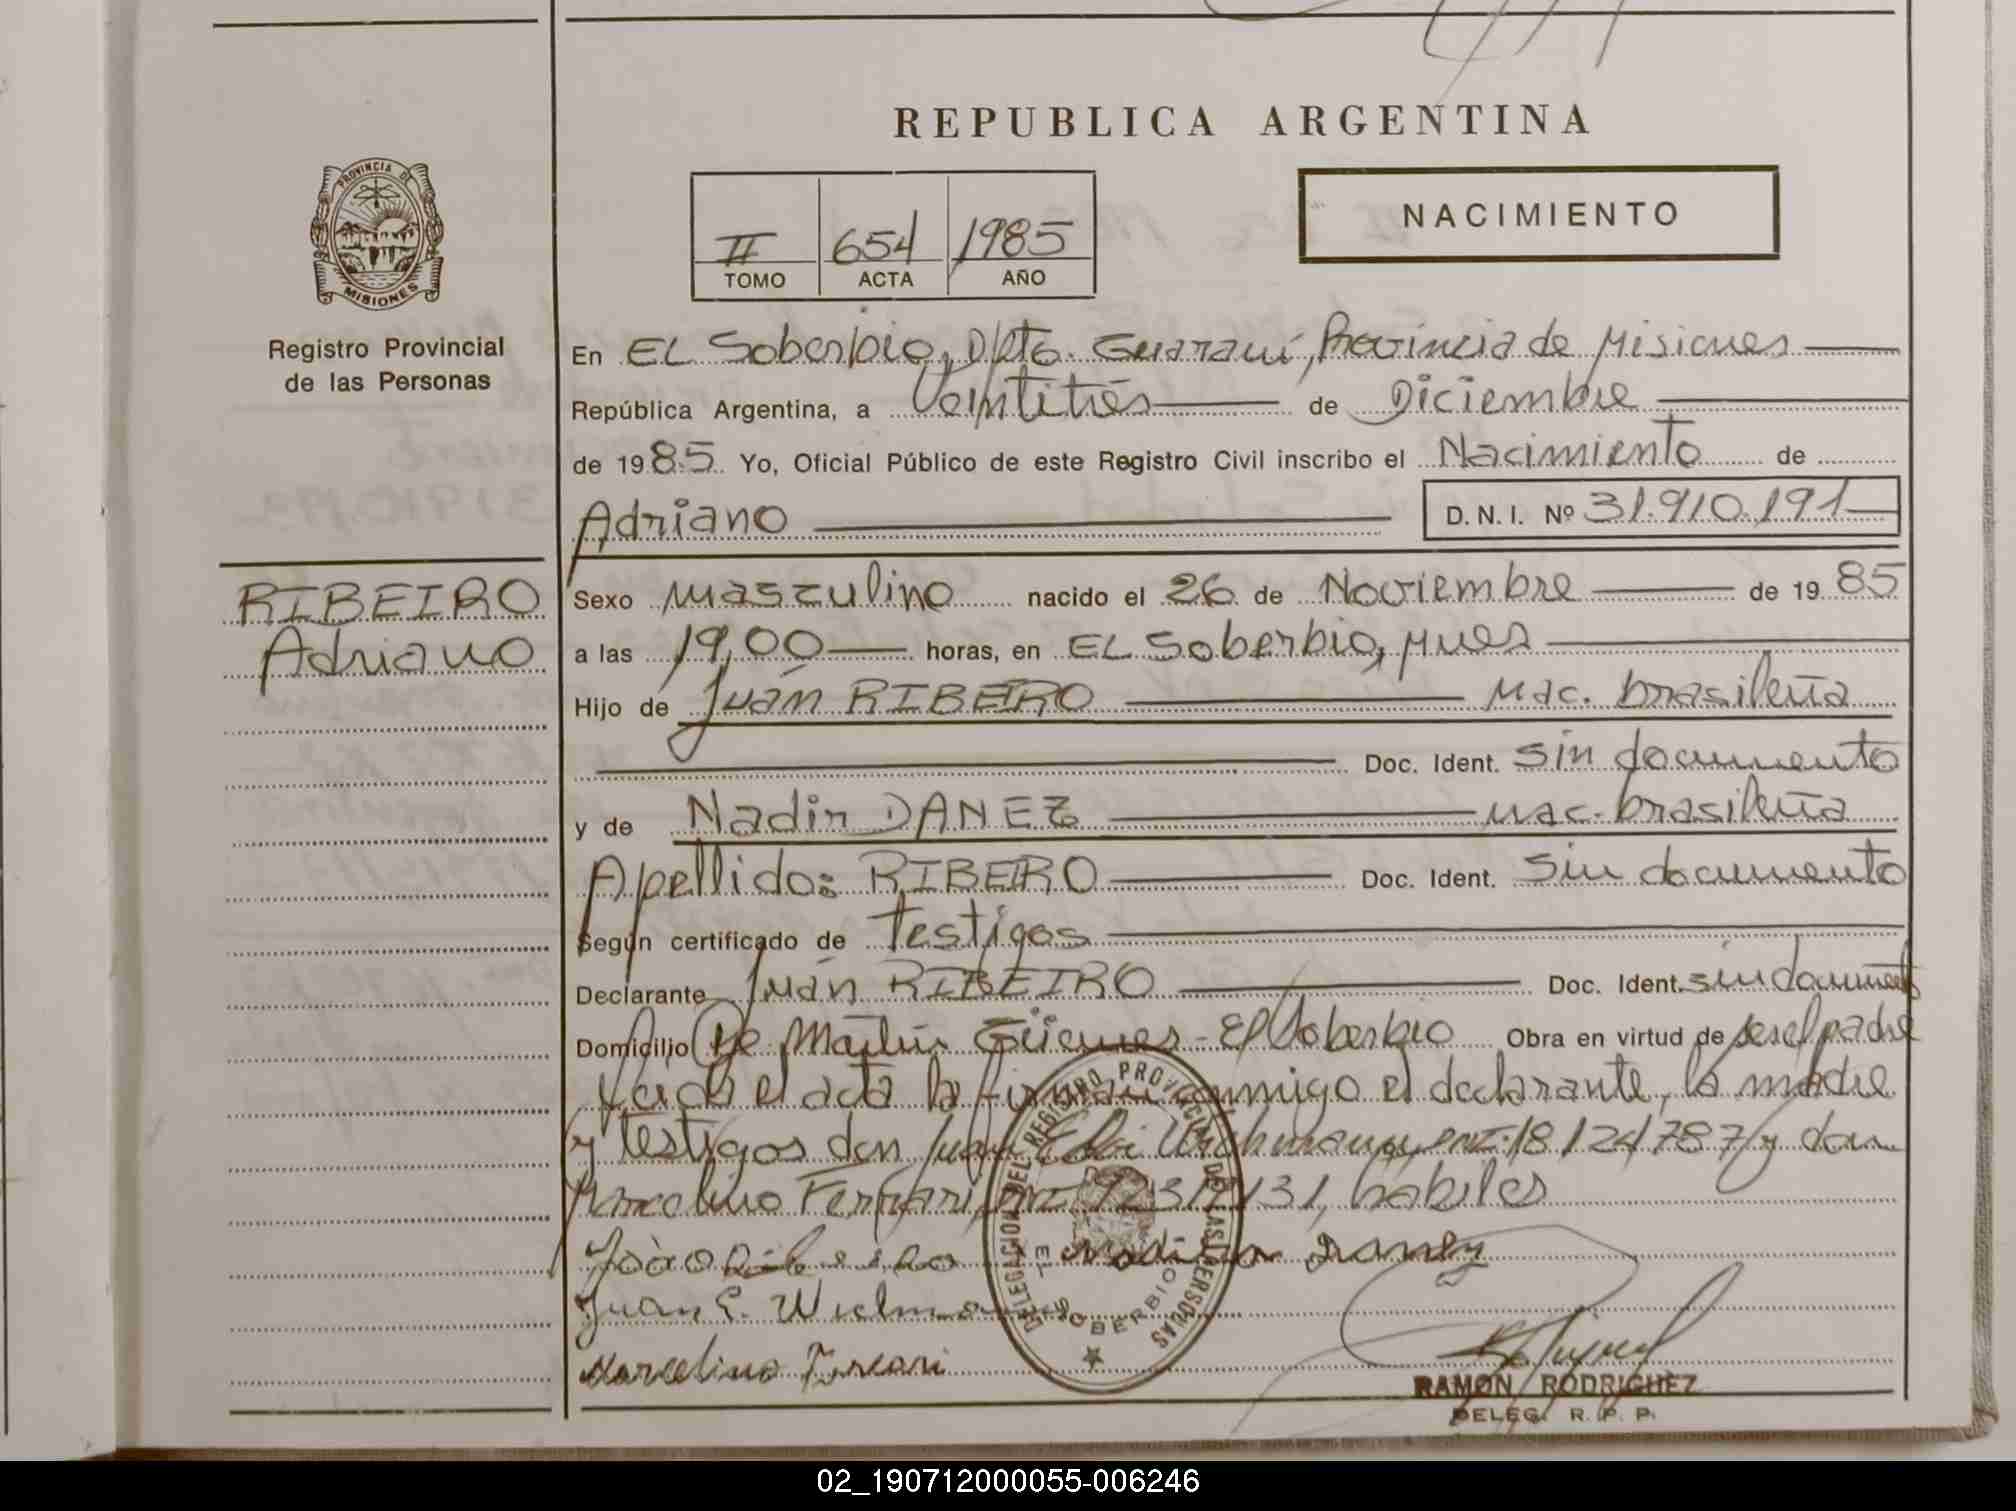 REPUBLICA ARGENTINA
PROVINCIA DE
MISIONES
Registro Provincial
de las Personas
II 654 1985
TOMO ACTA AÑO
NACIMIENTO
En EL Soberbio, Dpto. Guaraní, Provincia de Misiones
República Argentina, a Veintitrés de Diciembre
de 1985 Yo, Oficial Público de este Registro Civil inscribo el Nacimiento de
Adriano D. N. I. Nº 31.910.191
RIBEIRO
Adriano
Sexo masculino nacido el 26 de Noviembre de 1985
a las 19,00 horas, en EL Soberbio, Mnes
Hijo de Juán RIBEIRO nac. brasileña
Doc. Ident. sin documento
y de Nadir DANEZ nac. brasileña
Apellido: RIBEIRO Doc. Ident. sin documento
Según certificado de testigos
Declarante Juán RIBEIRO Doc. Ident. sin documento
Domicilio Pje Martín Güemes - El Soberbio Obra en virtud de ser el padre
Leída el acta la firman conmigo el declarante, la madre
y testigos don Juan 18.124.787 y don
Marcelino Ferrari, habiles
João Ribeiro Nadir Danez
Juan E.
Marcelino Ferrari
DELEGACION DEL REGISTRO PROVINCIAL DE LAS PERSONAS
EL SOBERBIO
RAMON RODRIGUEZ
DELEG. R. P. P.
02_190712000055-006246